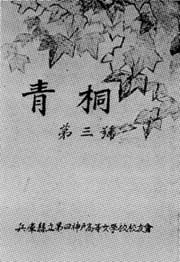 青桐
第三號
兵庫縣立第四神戸高等女學校校友會